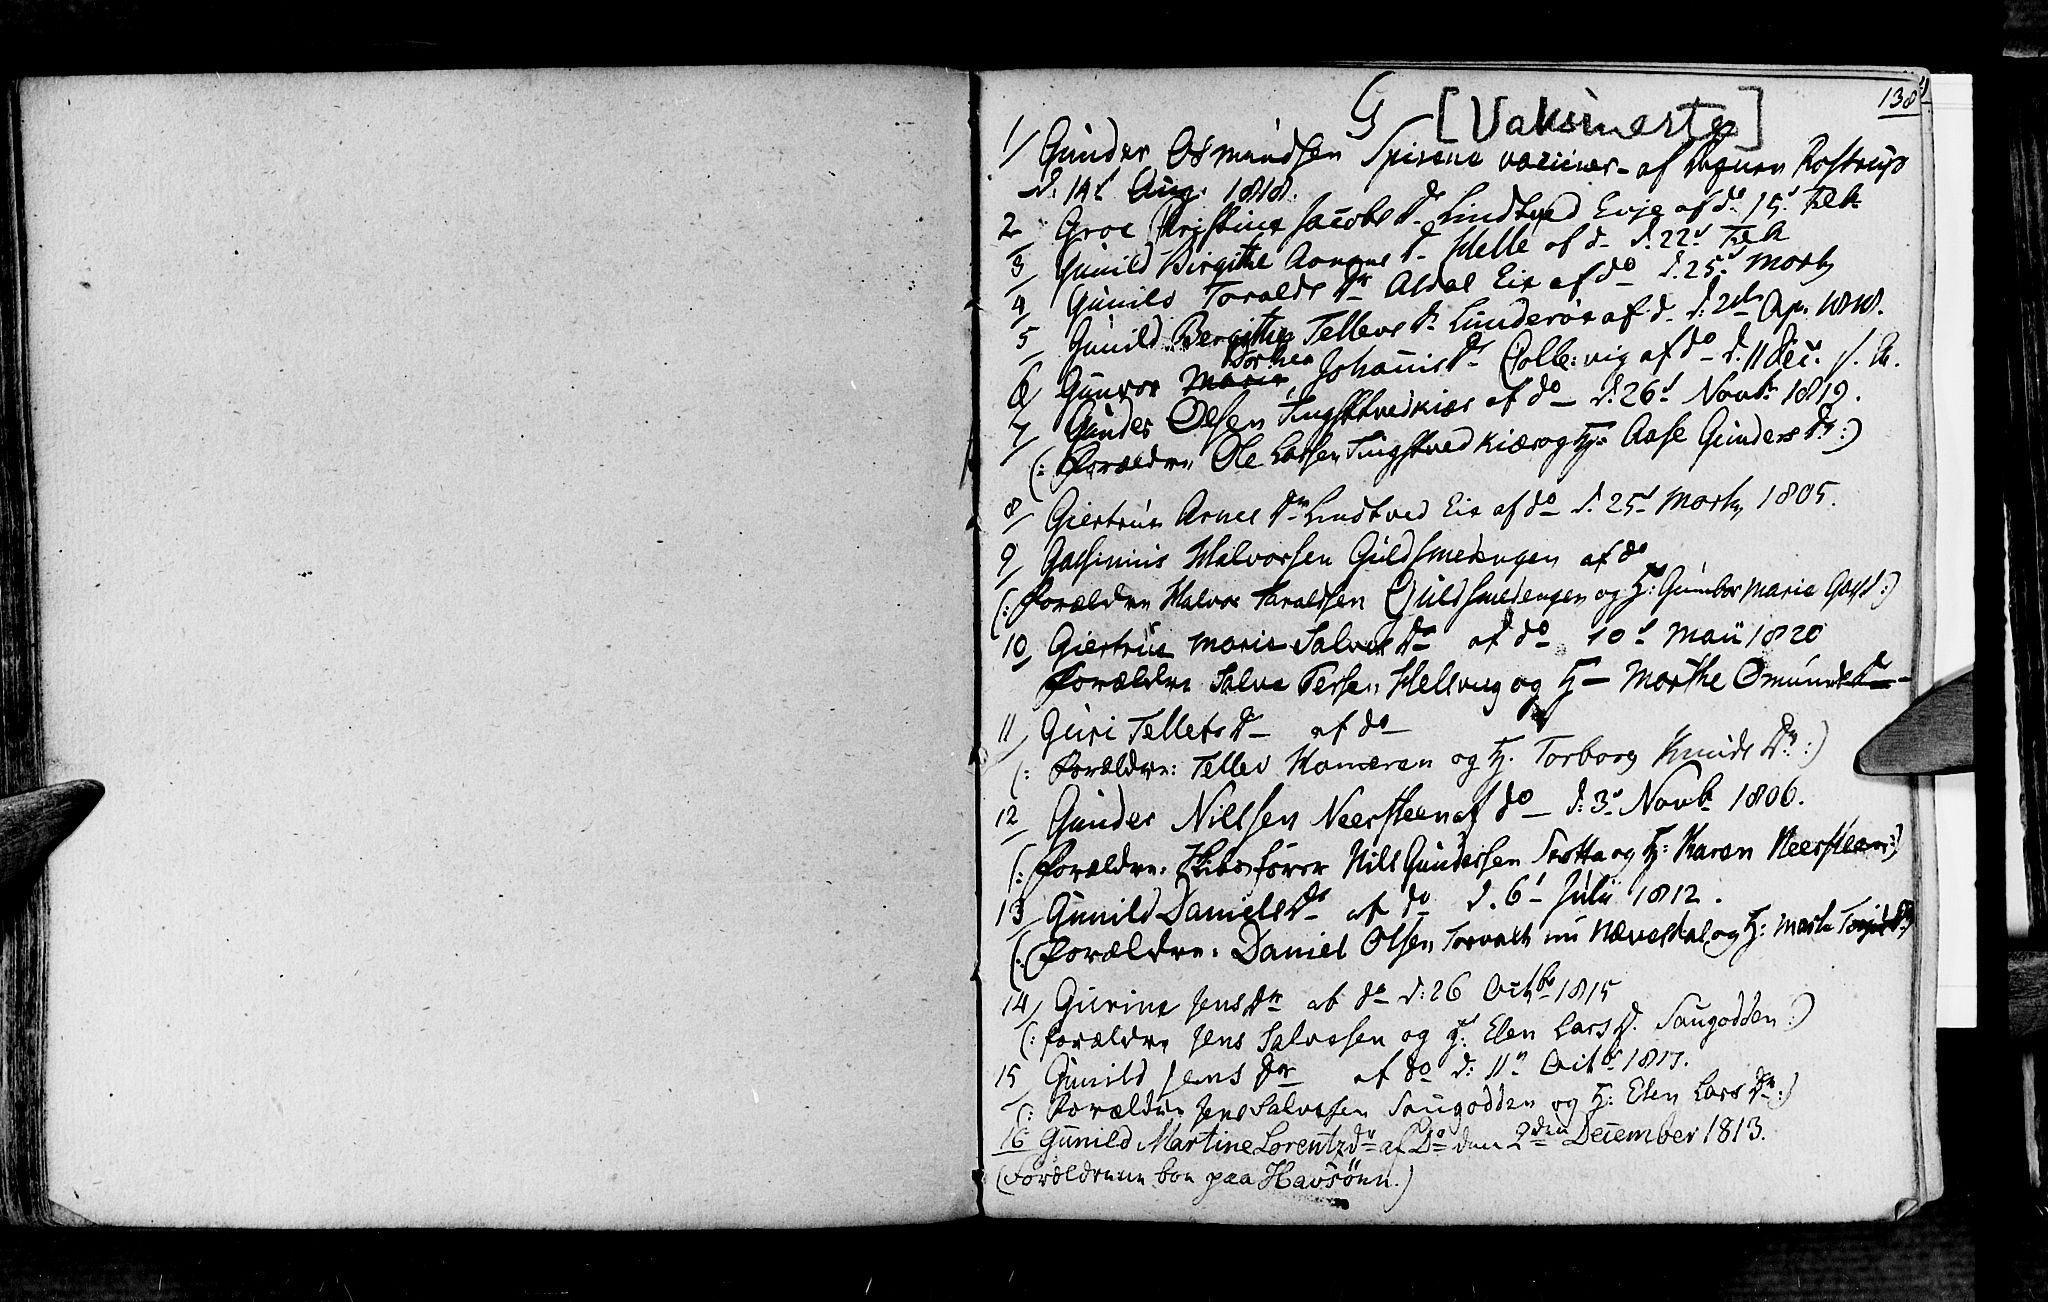 138
G [Vaksinerte]
1/ Gunder Osmundsen Spirene vaccineret af Rostrup
d. 14d Aug. 1818.
2 Groe Kristine Jacobs Dr Lindtved Eije af do 15d Feb
3/ Gunild Birgithe Aanons Dr Helle af do d. 22d Feb
4/ Gunild Taralds Dr Asdal Eie af do d. 25d Marts
5/ Gunild Bergithe Tellevs Dr Lunderöe af do d. 2den Apr. 1818.
6/ Gunvor Maria Dorthea Johannis Dr Colle:vig af do d. 11 Dec. s. A.
7/ Gunder Olsen Tingstvedkiær af do d. 26d Novbr 1819.
(: Forældre Ole Larsen Tingstvedkiær og H: Aase Gunders Dr :)
8/ Giertrud Arnes Dr Lindtved Eie af do d. 25d Marts 1805.
9/ Halvorsen Guldsmedengen af do
(: Forældre Halvor Taraldsen Guldsmedengen og H: Gunbor Maria :)
10/ Giertrud Marie Salves Dr af do 10d Maii 1820
Forældre Salve Persen Hellevig og H Marthe Omunds Dr
11/ Guri Tellefs Dr af do
(: Forældre: Tellev Kameran og H. Torborg Knuds Dr :)
12/ Gunder Nielsen Neersteen af do d: 3d Novb. 1806.
(: Forældre: Skibsfører Nils Gundersen Trotta og H: Karen Neersteen :)
13/ Gunild Daniels Dr af do d. 6d Julii 1812.
(: Forældre: Daniel Olsen nu Nævesdal og H: Marte Dr :)
14/ Gurine Jens Dr af do d: 26 Octbr 1815
(: Forældre Jens Salvesen og H: Elen Lars D. Saugodden :)
15/ Gunild Jens Dr af do d: 11n Octbr 1817.
(: Forældre Jens Salvesen Saugodden og H: Elen Lars Dr :)
16 Gunild Martine Lorentz dr af Do den 2den December 1813.
(Forældrene boe paa Havsöen.)